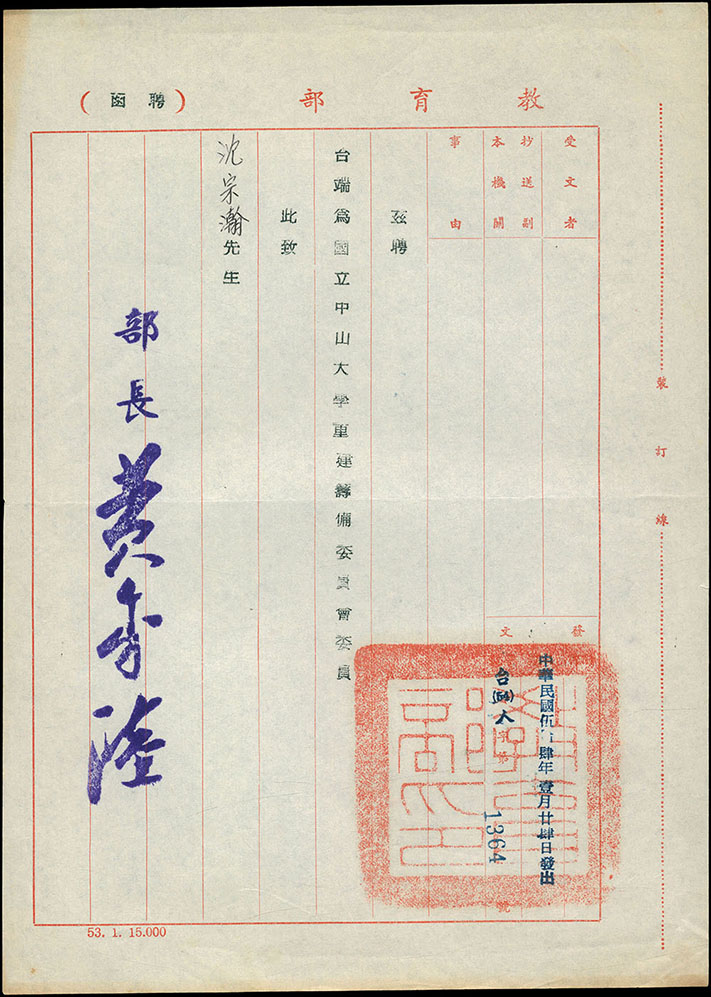 教育部（聘函）
受文者
抄送副本機關
事由
茲聘
台端為國立中山大学重建籌備委員會委員
此致
沈宗瀚先生
部長 黃季陸
發
文
中華民國伍肆年壹月廿肆日發出
台(54)人 字第
1364
號
裝訂線
53. 1. 15.000